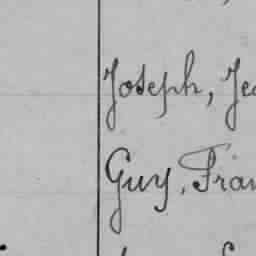 Joseph, Je
Guy, Fran